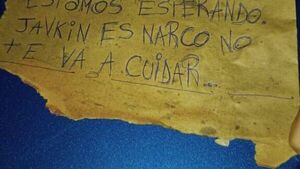 ESTAMOS ESPERANDO.
JAVKIN ES NARCO NO
TE VA A CUIDAR...